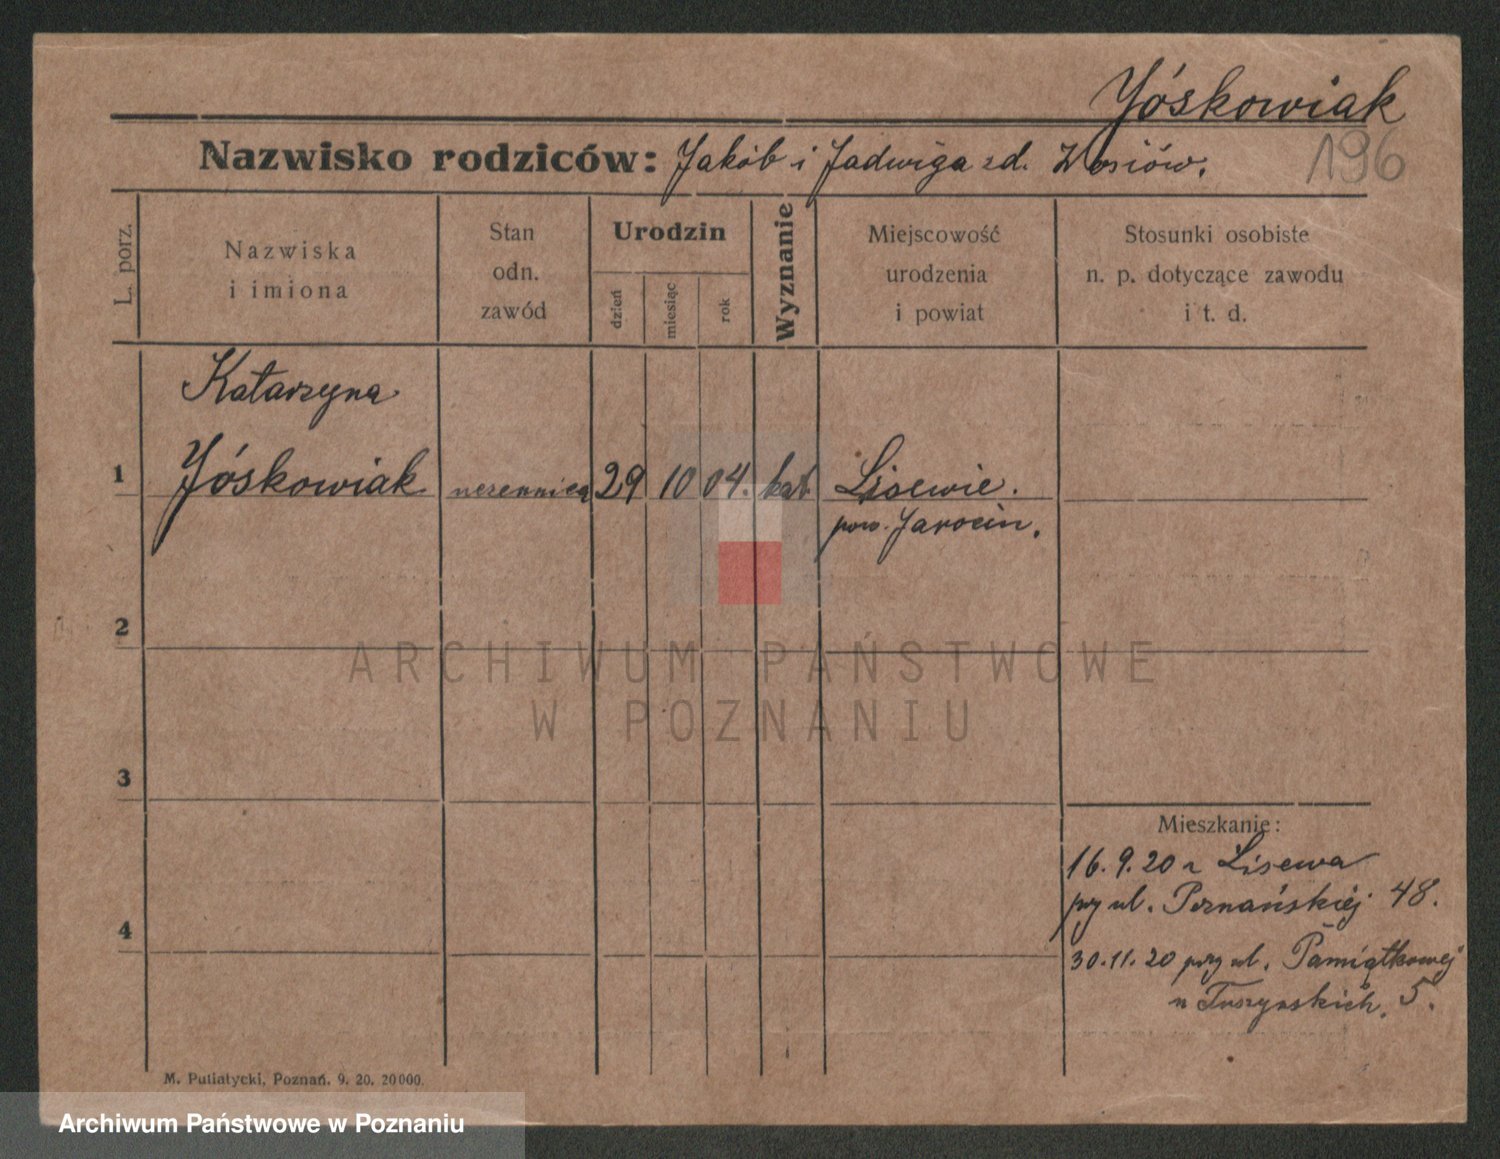 Jóskowiak
Nazwisko rodziców: Jakób i Jadwiga zd. Wosiów.
196
L. porz.
Nazwiska
i imiona
Stan
odn.
zawód
Urodzin
dzień
miesiąc
rok
Wyznanie
Miejscowość
urodzenia
i powiat
Stosunki osobiste
n. p. dotyczące zawodu
i t. d.
Katarzyna
1 Jóskowiak uczennica 29 10 04. kat. Lisewie.
pow. Jarocin.
2
3
4
Mieszkanie:
16.9.20 z Lisewa
przy ul. Poznańskiej 48.
30.11.20 przy ul. Pamiątkowej
u Tuszyńskich. 5.
M. Putiatycki, Poznań. 9. 20. 20000.
ARCHIWUM PAŃSTWOWE
W POZNANIU
Archiwum Państwowe w Poznaniu